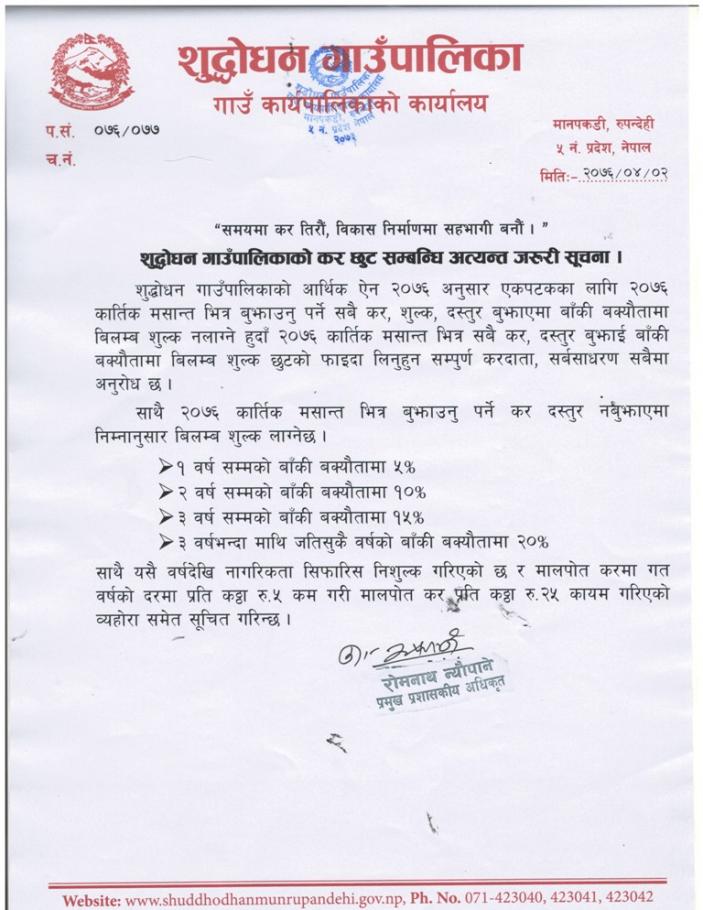 शुद्धोधन गाउँपालिका
गाउँ कार्यपालिकाको कार्यालय
प.सं. ०७६/०७७
च.नं.
मानपकडी, रुपन्देही
५ नं. प्रदेश, नेपाल
मितिः- २०७६/०४/०२
मानपकडी, रुपन्देही
५ नं. प्रदेश नेपाल
२०७३
"समयमा कर तिरौं, विकास निर्माणमा सहभागी बनौं । "
शुद्धोधन गाउँपालिकाको कर छुट सम्बन्धि अत्यन्त जरुरी सूचना ।
शुद्धोधन गाउँपालिकाको आर्थिक ऐन २०७६ अनुसार एकपटकका लागि २०७६
कार्तिक मसान्त भित्र बुझाउनु पर्ने सबै कर, शुल्क, दस्तुर बुझाएमा बाँकी बक्यौतामा
बिलम्ब शुल्क नलाग्ने हुदाँ २०७६ कार्तिक मसान्त भित्र सबै कर, दस्तुर बुझाई बाँकी
बक्यौतामा बिलम्ब शुल्क छुटको फाइदा लिनुहुन सम्पुर्ण करदाता, सर्बसाधरण सबैमा
अनुरोध छ ।
साथै २०७६ कार्तिक मसान्त भित्र बुझाउनु पर्ने कर दस्तुर नबुझाएमा
निम्नानुसार बिलम्ब शुल्क लाग्नेछ ।
➢१ वर्ष सम्मको बाँकी बक्यौतामा ५%
➢२ वर्ष सम्मको बाँकी बक्यौतामा १०%
➢३ वर्ष सम्मको बाँकी बक्यौतामा १५%
➢३ वर्षभन्दा माथि जतिसुकै वर्षको बाँकी बक्यौतामा २०%
साथै यसै वर्षदेखि नागरिकता सिफारिस निशुल्क गरिएको छ र मालपोत करमा गत
वर्षको दरमा प्रति कठ्ठा रु.५ कम गरी मालपोत कर प्रति कठ्ठा रु.२५ कायम गरिएको
व्यहोरा समेत सूचित गरिन्छ ।
रोमनाथ न्यौपाने
प्रमुख प्रशासकीय अधिकृत
Website: www.shuddhodhanmunrupandehi.gov.np, Ph. No. 071-423040, 423041, 423042